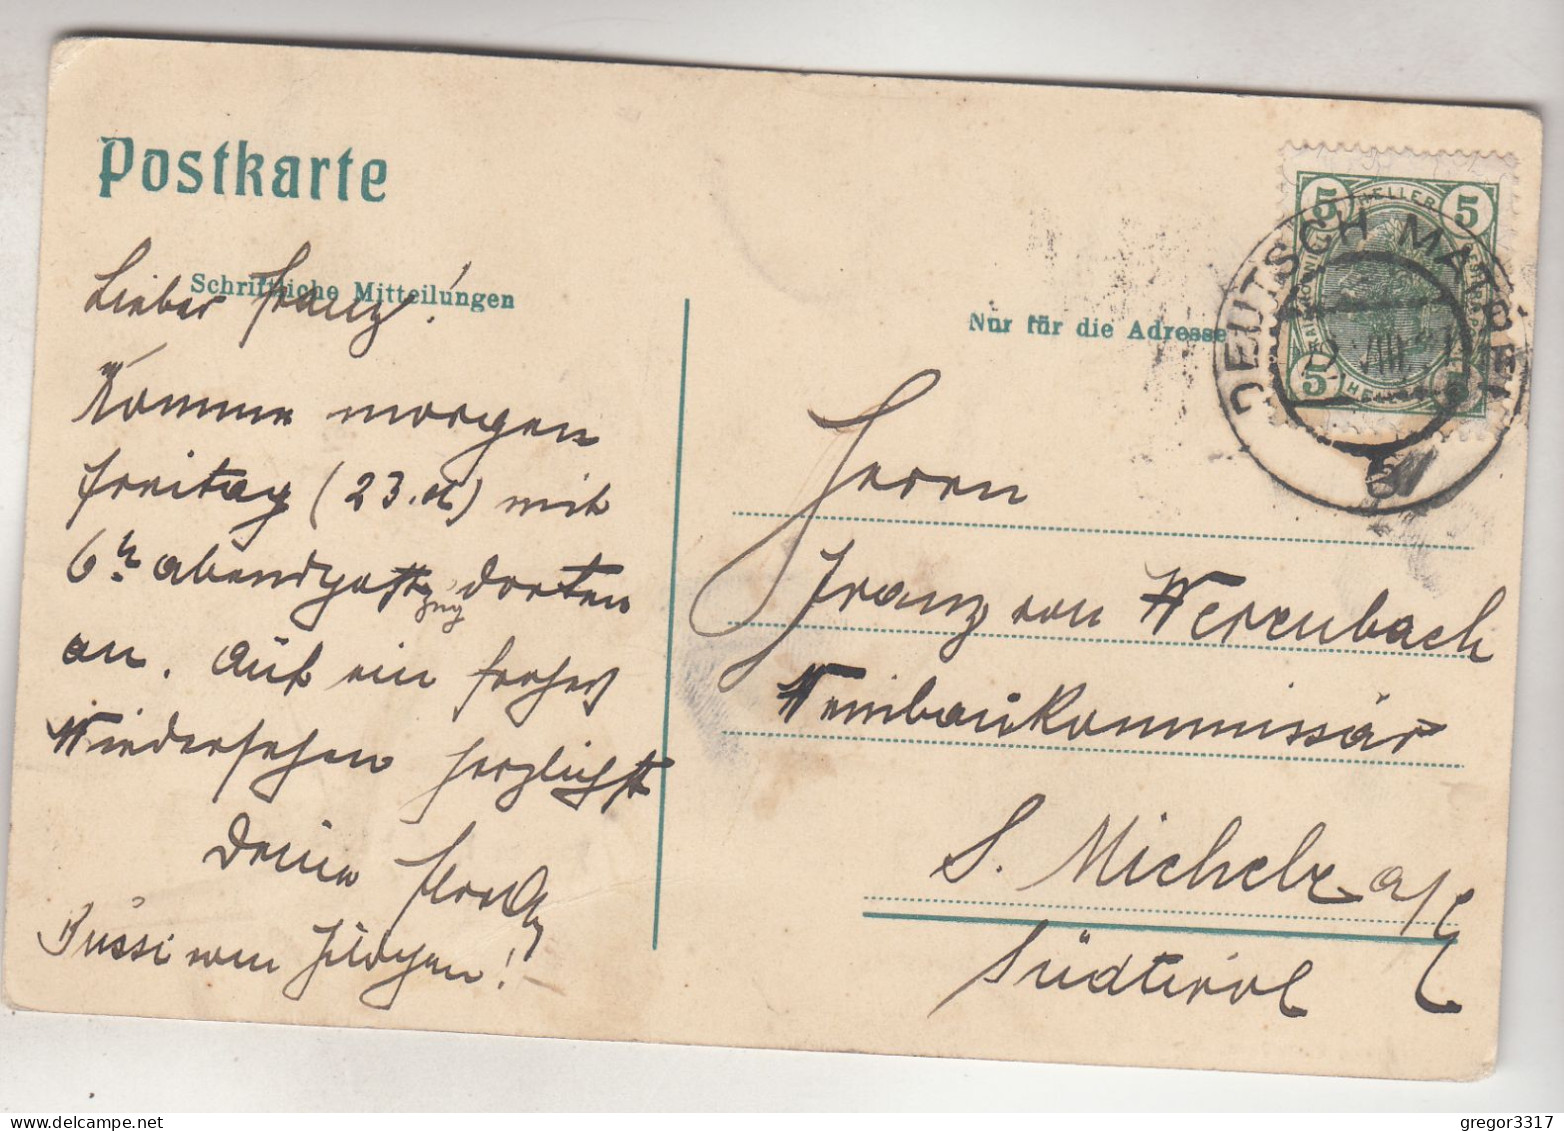 Postkarte
Schriftliche Mitteilungen
Lieber Franz!
Komme morgen
Freitag (23. d) mit
6h abendpost
zug dorten
an. Auf ein frohes
Wiedersehen herzlichst
Deine
Bussi von
Nur für die Adresse
5 HELLER 5
5 5
DEUTSCH MATREI
VIII
Herrn
Franz von Werenbach
Weinbaukommissär
S. Michele a/E
Südtirol
gregor3317